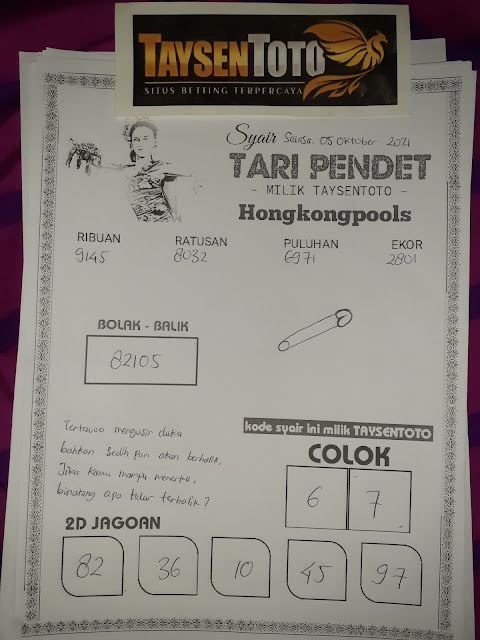 TAYSENTOTO
SITUS BETTING TERPERCAYA
Syair Selasa. 05 Oktober 2021
TARI PENDET
- MILIK TAYSENTOTO -
Hongkongpools
RIBUAN RATUSAN PULUHAN EKOR
9145 8032 6971 2801
BOLAK - BALIK
82105
Tertawa mengusir duka
bahkan sedih pun akan berbalik,
Jika kamu mampu menerka,
binatang apa tidur terbalik?
kode syair ini milik TAYSENTOTO
COLOK
6 7
2D JAGOAN
82 36 10 45 97